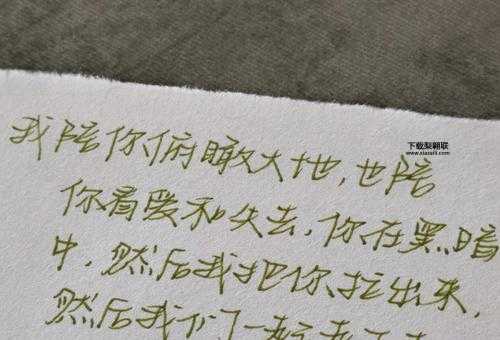 我陪你俯瞰大地,也陪
你看爱和失去,你在黑暗
中,然后我把你拉出来,
然后我们一起
下载梨翱联
www.xiazaili.com